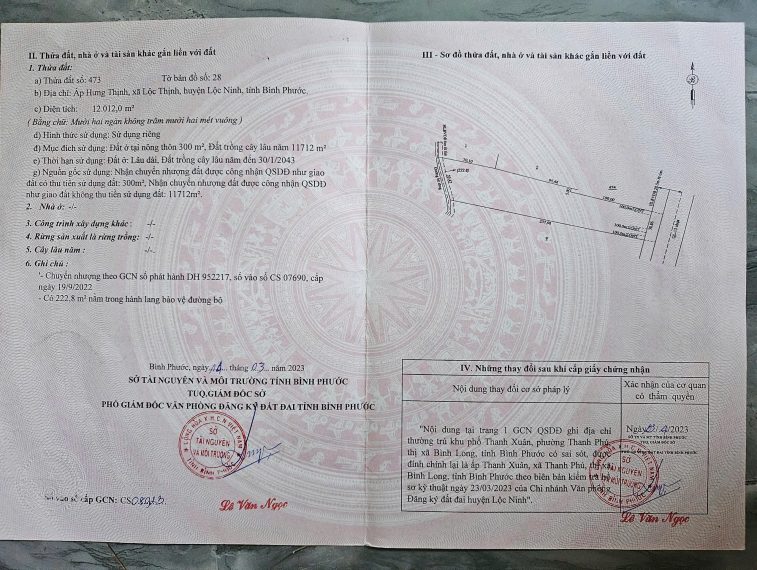 II. Thửa đất, nhà ở và tài sản khác gắn liền với đất
1. Thửa đất:
a) Thửa đất số: 473 Tờ bản đồ số: 28
b) Địa chỉ: Ấp Hưng Thịnh, xã Lộc Thịnh, huyện Lộc Ninh, tỉnh Bình Phước.
c) Diện tích: 12 012,0 m²
( Bằng chữ: Mười hai ngàn không trăm mười hai mét vuông )
d) Hình thức sử dụng: Sử dụng riêng
đ) Mục đích sử dụng: Đất ở tại nông thôn 300 m², Đất trồng cây lâu năm 11712 m²
e) Thời hạn sử dụng: Đất ở: Lâu dài, Đất trồng cây lâu năm đến 30/1/2043
g) Nguồn gốc sử dụng: Nhận chuyển nhượng đất được công nhận QSDĐ như giao
đất có thu tiền sử dụng đất: 300m², Nhận chuyển nhượng đất được công nhận QSDĐ
như giao đất không thu tiền sử dụng đất: 11712m².
2. Nhà ở: -/-
3. Công trình xây dựng khác : -/-
4. Rừng sản xuất là rừng trồng: -/-
5. Cây lâu năm : -/-
6. Ghi chú :
'- Chuyển nhượng theo GCN số phát hành DH 952217, số vào số CS 07690, cấp
ngày 19/9/2022
- Có 222,8 m² nằm trong hành lang bảo vệ đường bộ
Bình Phước, ngày 14 tháng 03 năm 2023
SỞ TÀI NGUYÊN VÀ MÔI TRƯỜNG TỈNH BÌNH PHƯỚC
TUQ.GIÁM ĐỐC SỞ
PHÓ GIÁM ĐỐC VĂN PHÒNG ĐĂNG KÝ ĐẤT ĐAI TỈNH BÌNH PHƯỚC
SỞ
TÀI NGUYÊN
VÀ MÔI TRƯỜNG
TỈNH BÌNH PHƯỚC
Lê Văn Ngọc
số cấp GCN: CS
III - Sơ đồ thửa đất, nhà ở và tài sản khác gắn liền với đất
IV. Những thay đổi sau khi cấp giấy chứng nhận
Nội dung thay đổi cơ sở pháp lý
Xác nhận của cơ quan
có thẩm quyền
"Nội dung tại trang 1 GCN QSDĐ ghi địa chỉ
thường trú khu phố Thanh Xuân, phường Thanh Phú,
thị xã Bình Long, tỉnh Bình Phước có sai sót, được
đính chính lại là ấp Thanh Xuân, xã Thanh Phú, thị xã
Bình Long, tỉnh Bình Phước theo biên bản kiểm tra hồ
sơ kỹ thuật ngày 23/03/2023 của Chi nhánh Văn phòng
Đăng ký đất đai huyện Lộc Ninh".
Ngày /2023
SỞ
TÀI NGUYÊN
VÀ MÔI TRƯỜNG
Lê Văn Ngọc